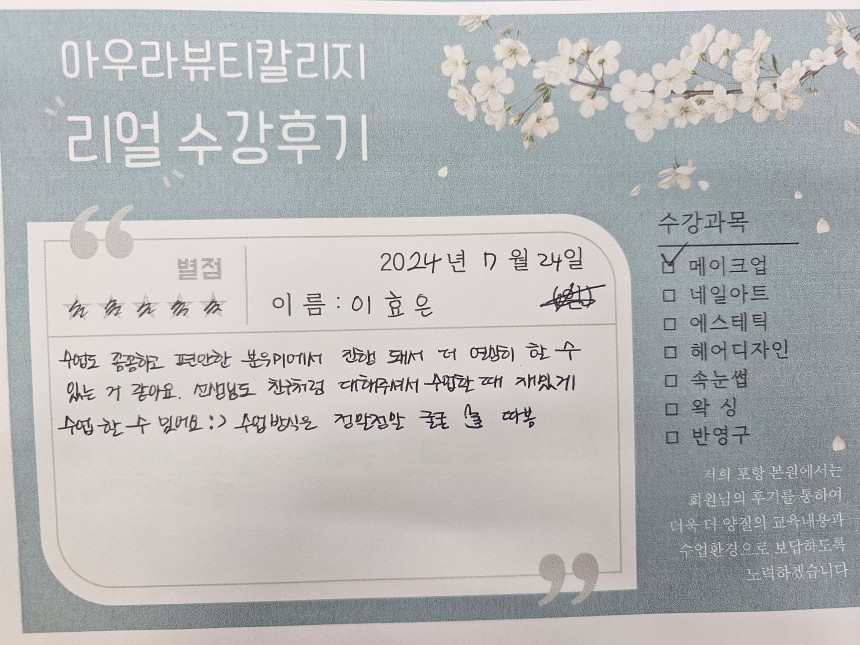 아우라뷰티칼리지
리얼 수강후기
별점
2024년 7월 24일
이름 : 이효은
수업도 꼼꼼하고 편안한 분위기에서 진행 돼서 더 열심히 할 수
있는 거 같아요. 선생님도 친구처럼 대해주셔서 수업할 때 재밌게
수업 할 수 있어요 :> 수업방식은 정말정말 굳굳 따봉
수강과목
메이크업
네일아트
에스테틱
헤어디자인
속눈썹
왁싱
반영구
저희 포항 본원에서는
회원님의 후기를 통하여
더욱 더 양질의 교육내용과
수업환경으로 보답하도록
노력하겠습니다